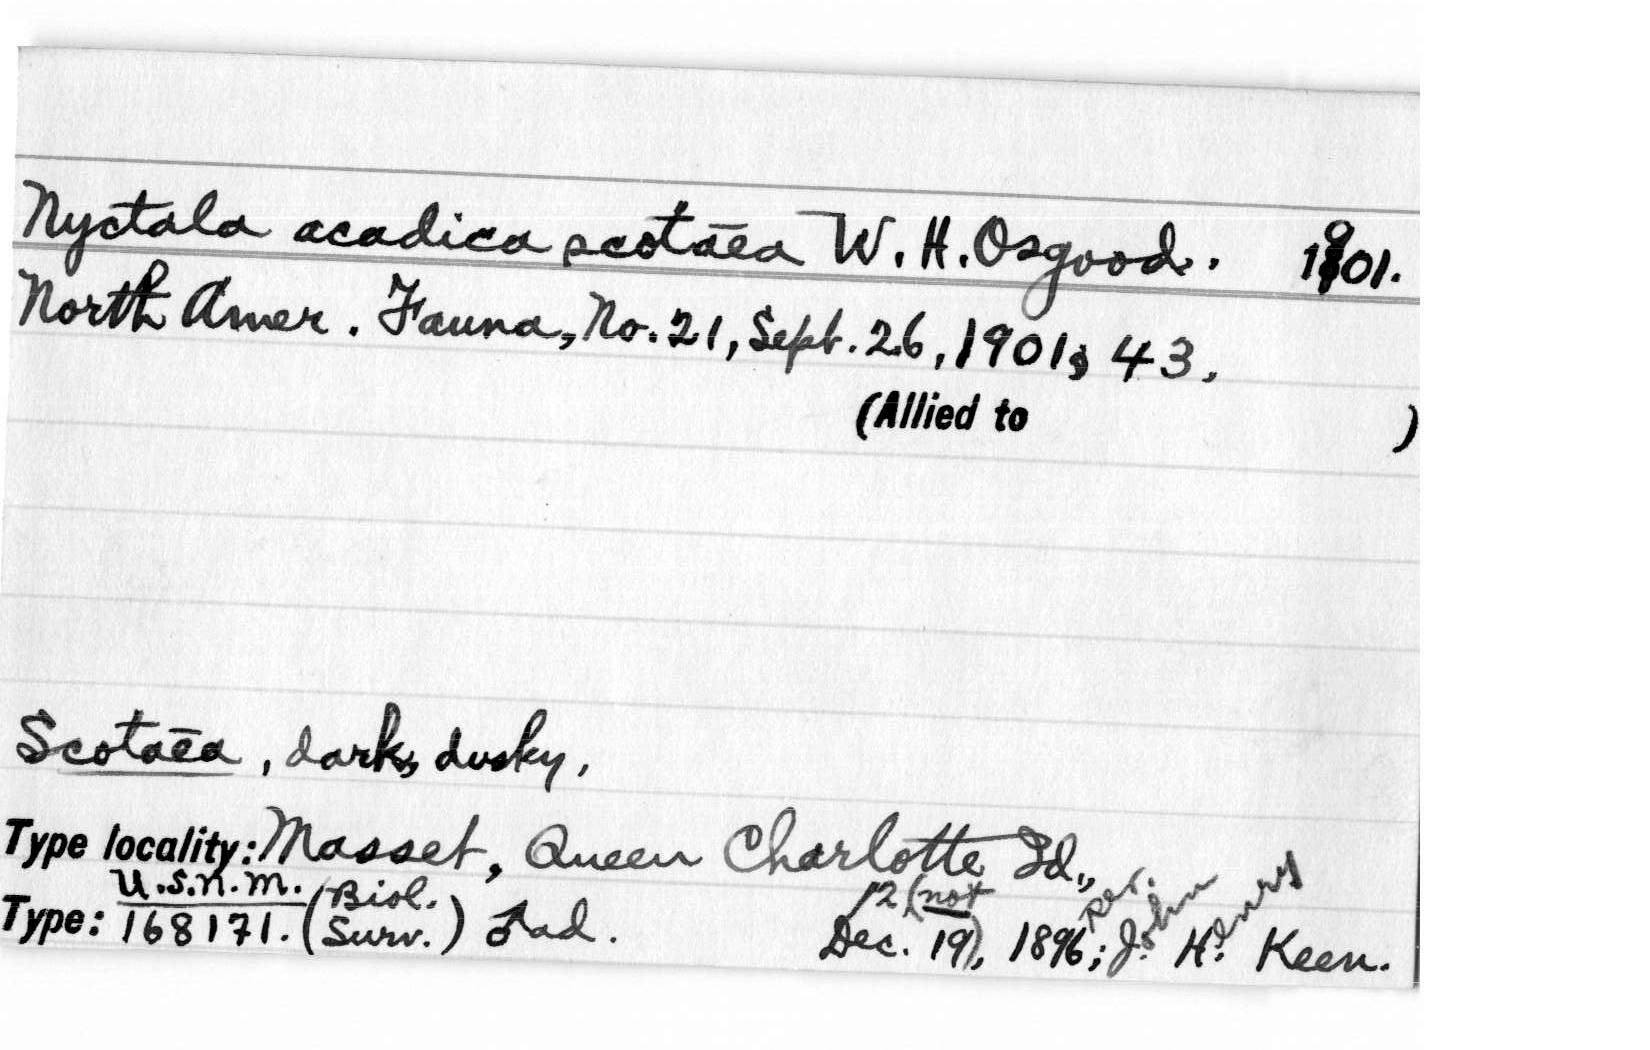 Nyctala acadica scotāea W. H. Osgood. 1901.
North Amer. Fauna, No. 21, Sept. 26, 1901, 43.
(Allied to )
Scotaēa, dark, dusky.
Type locality: Masset, Queen Charlotte Id.,
Type: U.S.N.M. 168171. (Biol. Surv.) ♂ ad. Dec. 12 (not 19), 1896; Rev. John Henry Keen.